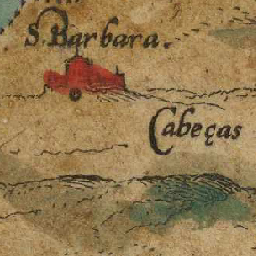 S. Barbara.
Cabeças